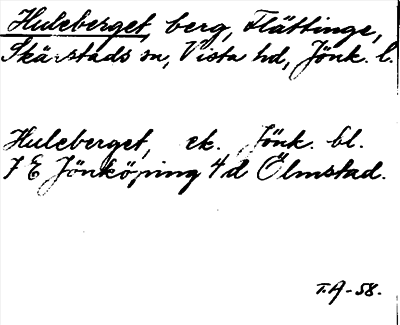 Huleberget, berg, Flättinge,
Skärstads sn, Vista hd, Jönk. l.
Huleberget, ek. Jönk. bl.
7 E Jönköping 4 d Ölmstad.
T.A-58.